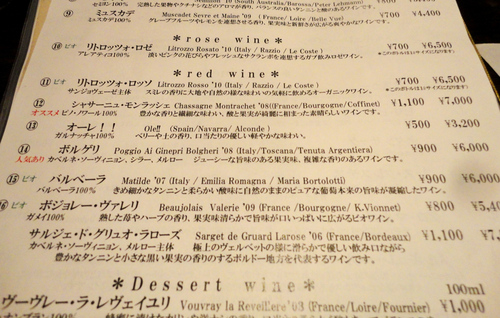 セミヨン100% 完熟した果物やナチナッツなどのアロマが香り、バランスの良いタンニンと酸のあるワインです。
⑨ ミュスカデ Muscadet Sevre et Maine '09 (France/ Loire /Belle Vue) ¥700 ¥4,400
ミュスカデ100% グレープフルーツやレモンを連想させる香り、果実味と新鮮さが広がる爽やかなワインです。
*rose wine*
⑩ ビオ リトロッツォ・ロゼ Litrozzo Rosato '10 (Italy / Razio / Le Coste) ¥700 ¥6,500
アレアティコ100% 淡いピンクの花びらやフレッシュなサクランボを連想するガブ飲みロゼワイン。
*red wine*
⑪ ビオ リトロッツォ・ロッソ Litrozzo Rosso '10 (Italy / Razio / Le Coste) ¥700 ¥6,500
サンジョヴェーゼ主体 スミレの香りに大地や自然の様なオーガニックワイン。
⑫ シャサーニュ・モンラッシェ Chassagne Montrachet '08(France/Bourgogne/Coffinet) ¥1,100 ¥7,000
オススメ ピノ・ノワール100% 豊かな香りと繊細な味わい、酸と果実が綺麗に相まった素晴らしいワインです。
⑬ オーレ!! Ole!! (Spain/Navarra/ Alconde) ¥500 ¥3,200
ガルナッチャ100% ベリーティの香り、口当たりの優しい軽やかな味わい。
⑭ ポルゲリ Poggio Ai Ginepri Bolgheri '08 (Italy/Toscana/Tenuta Argentiera) ¥900 ¥6,000
人気あり カベルネ・ソーヴィニヨン、シラー、メルロー ジューシーな旨味のある果実味、複雑な香りのあるワインです。
⑮ ビオ バルベーラ Matilde '07 (Italy / Emilia Romagna / Maria Bortolotti) ¥900 ¥6,000
バルベーラ100% きめ細かなタンニンと柔らかい酸味に自然のままのピュアな葡萄本来の旨味が凝縮したワイン。
⑯ ビオ ボジョレー・ヴァレリ Beaujolais Valerie '09 (France/ Bourgogne/ K.Vionnet) ¥800 ¥5,4
ガメイ100% 熟した苺やハーブの香り、果実味滑らかで旨味が口いっぱいに広がるビオワイン。
サルジェ・ド・グリュオ・ラローズ Sarget de Gruard Larose '06 (France/Bordeaux) ¥1,100 ¥7,
カベルネ・ソーヴィニヨン、メルロー主体 極上のヴェルベットの様に滑らかで優しい飲み口ながら
豊かなタンニンと小さな黒い果実の香りのするボルドー地方を代表するワインです。
*Dessert wine*
100ml
ヴーヴレー・ラ・レヴェイユリ Vouvray la Reveillere '03 (France/Loire/Fournier) ¥1,000